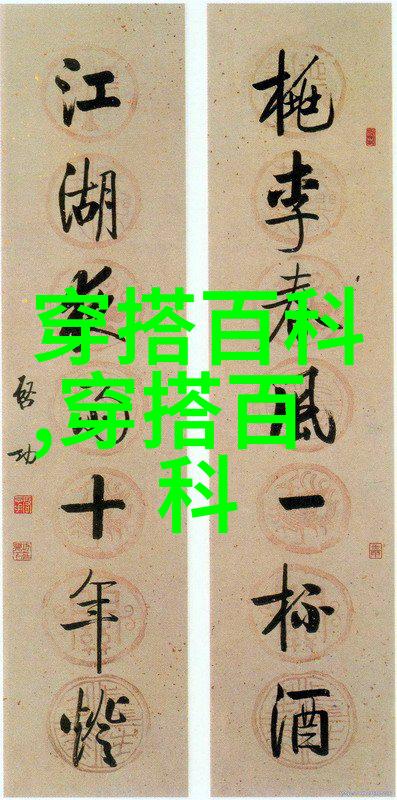 桃李春風一杯酒
江湖夜雨十年燈
啓功
穿搭百科
,穿搭百
科